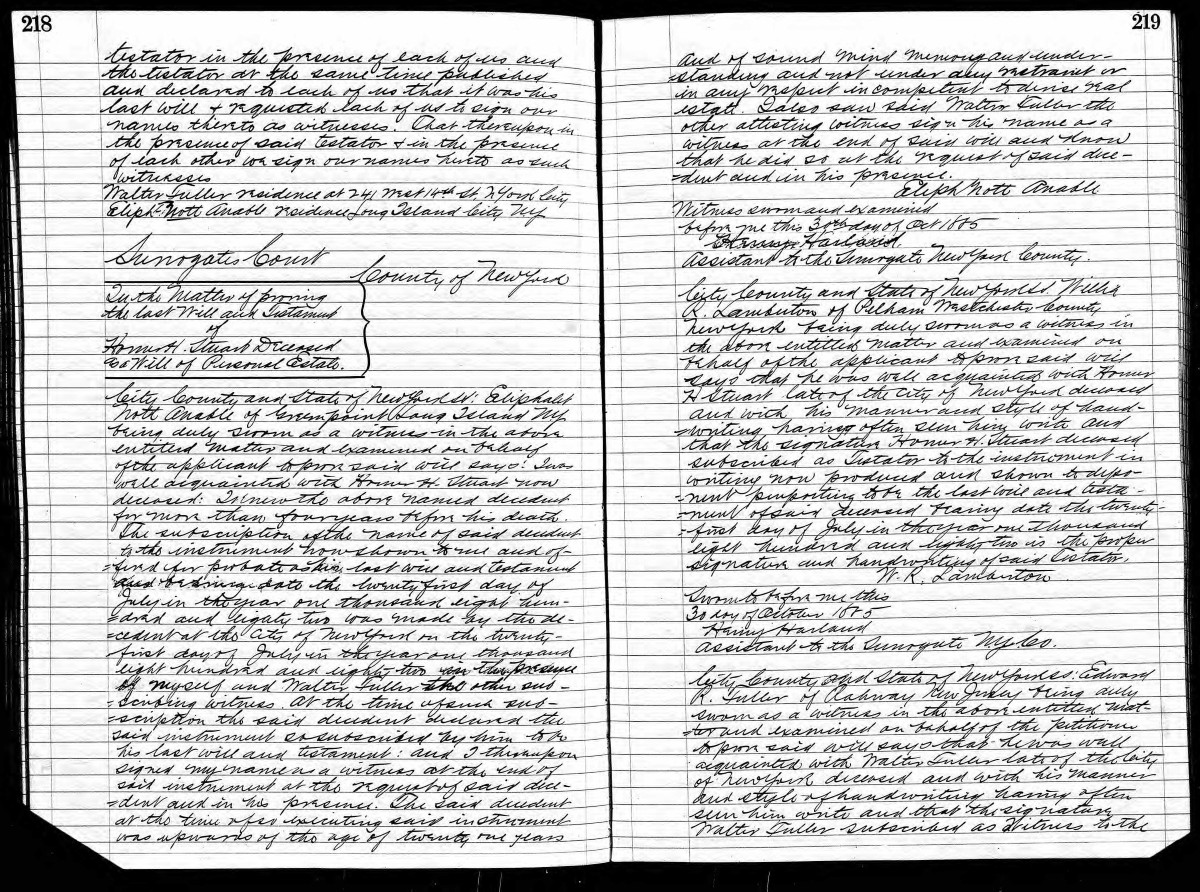 218
testator in the presence of each of us and
the testator at the same time published
and declared to each of us that it was his
last will & requested each of us to sign our
names thereto as witnesses. That thereupon in
the presence of said testator & in the presence
of each other we sign our names hereto as such
witnesses
Walter Fuller residence at 241 West 14th St. N. York City
Eliph. Nott Anable residence Long Island City NY
Surrogates Court
County of New York
In the Matter of proving
the last Will and Testament
of
Homer H. Stuart Deceased
as a Will of Personal Estate.
City County and State of New York ss: Eliphalet
Nott Anable of Greenpoint Long Island NY
being duly sworn as a witness in the above
entitled matter and examined on behalf
of the applicant to prove said will says: I was
well acquainted with Homer H. Stuart now
deceased: I knew the above named decedent
for more than four years before his death.
The subscription of the name of said decedent
to the instrument now shown to me and of-
=fered for probate as his last will and testament
and bearing date the twenty first day of
July in the year one thousand eight hun-
=dred and eighty two was made by the de-
=cedent at the City of New York on the twenty-
first day of July in the year one thousand
eight hundred and eighty two in the presence
of myself and Walter Fuller the other sub-
=scribing witness. At the time of such sub-
=scription the said decedent declared the
said instrument so subscribed by him to be
his last will and testament: and I thereupon
signed my name as a witness at the end of
said instrument at the request of said dece-
=dent and in his presence. The said decedent
at the time of so executing said instrument
was upwards of the age of twenty one years
219
and of sound mind memory and under-
=standing and not under any restraint or
in any respect incompetent to devise real
estate. I also saw said Walter Fuller the
other attesting witness sign his name as a
witness at the end of said will and know
that he did so at the request of said dece-
=dent and in his presence.
Eliph Nott Anable
Witness sworn and examined
before me this 30th day of Oct 1885
Henry Harland
Assistant to the Surrogate New York County.
City County and State of New York ss. Willis
R. Lamberton of Pelham Westchester County
New York being duly sworn as a witness in
the above entitled matter and examined on
behalf of the applicant to prove said will
says that he was well acquainted with Homer
H Stuart late of the City of New York deceased
and with his manner and style of hand-
=writing having often seen him write and
that the signature Homer H. Stuart deceased
subscribed as Testator to the instrument in
writing now produced and shown to depo-
=nent purporting to be the last will and testa-
=ment of said deceased bearing date the twenty-
=first day of July in the year one thousand
eight hundred and eighty two is the proper
signature and handwriting of said Testator.
W. R. Lamberton
Sworn to before me this
30 day of October 1885
Henry Harland
Assistant to the Surrogate N.Y. Co.
City County and State of New York ss: Edward
R. Fuller of Rahway New Jersey being duly
sworn as a witness in the above entitled mat-
=ter and examined on behalf of the petitioner
to prove said will says that he was well
acquainted with Walter Fuller late of the City
of New York deceased and with his manner
and style of handwriting having often
seen him write and that the signature
Walter Fuller subscribed as Witness to the